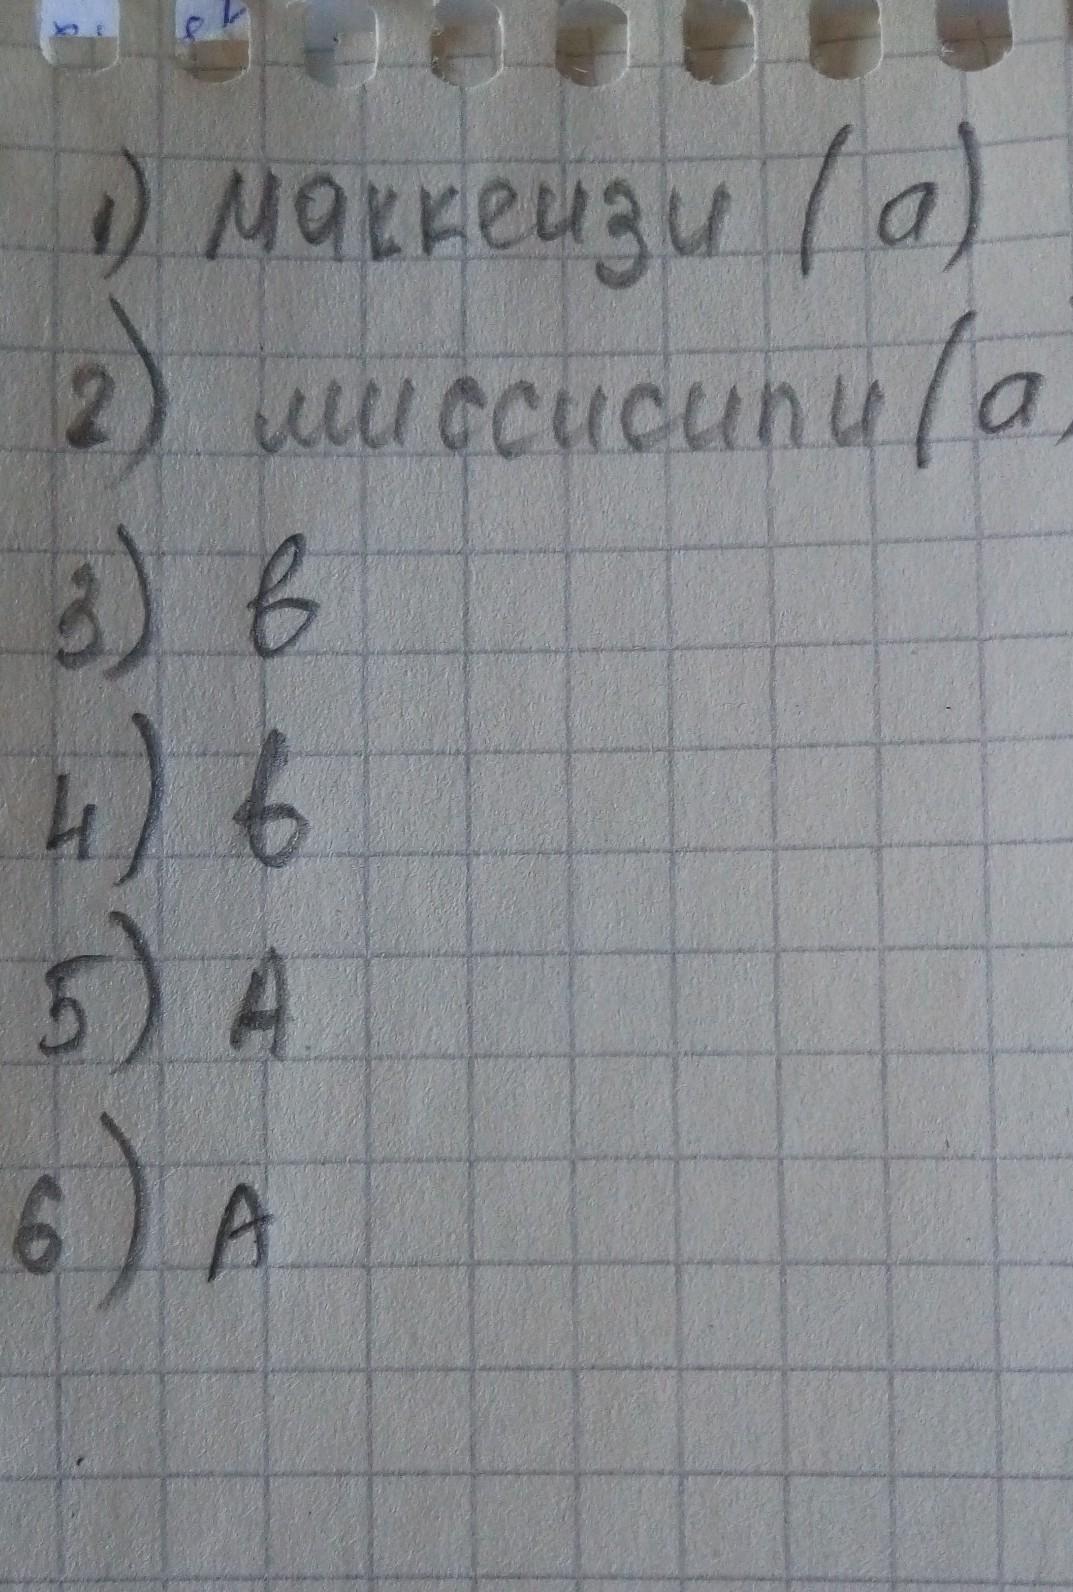 1) маккеизи (а)
2) миссисипи (а)
3) в
4) в
5) А
6) А